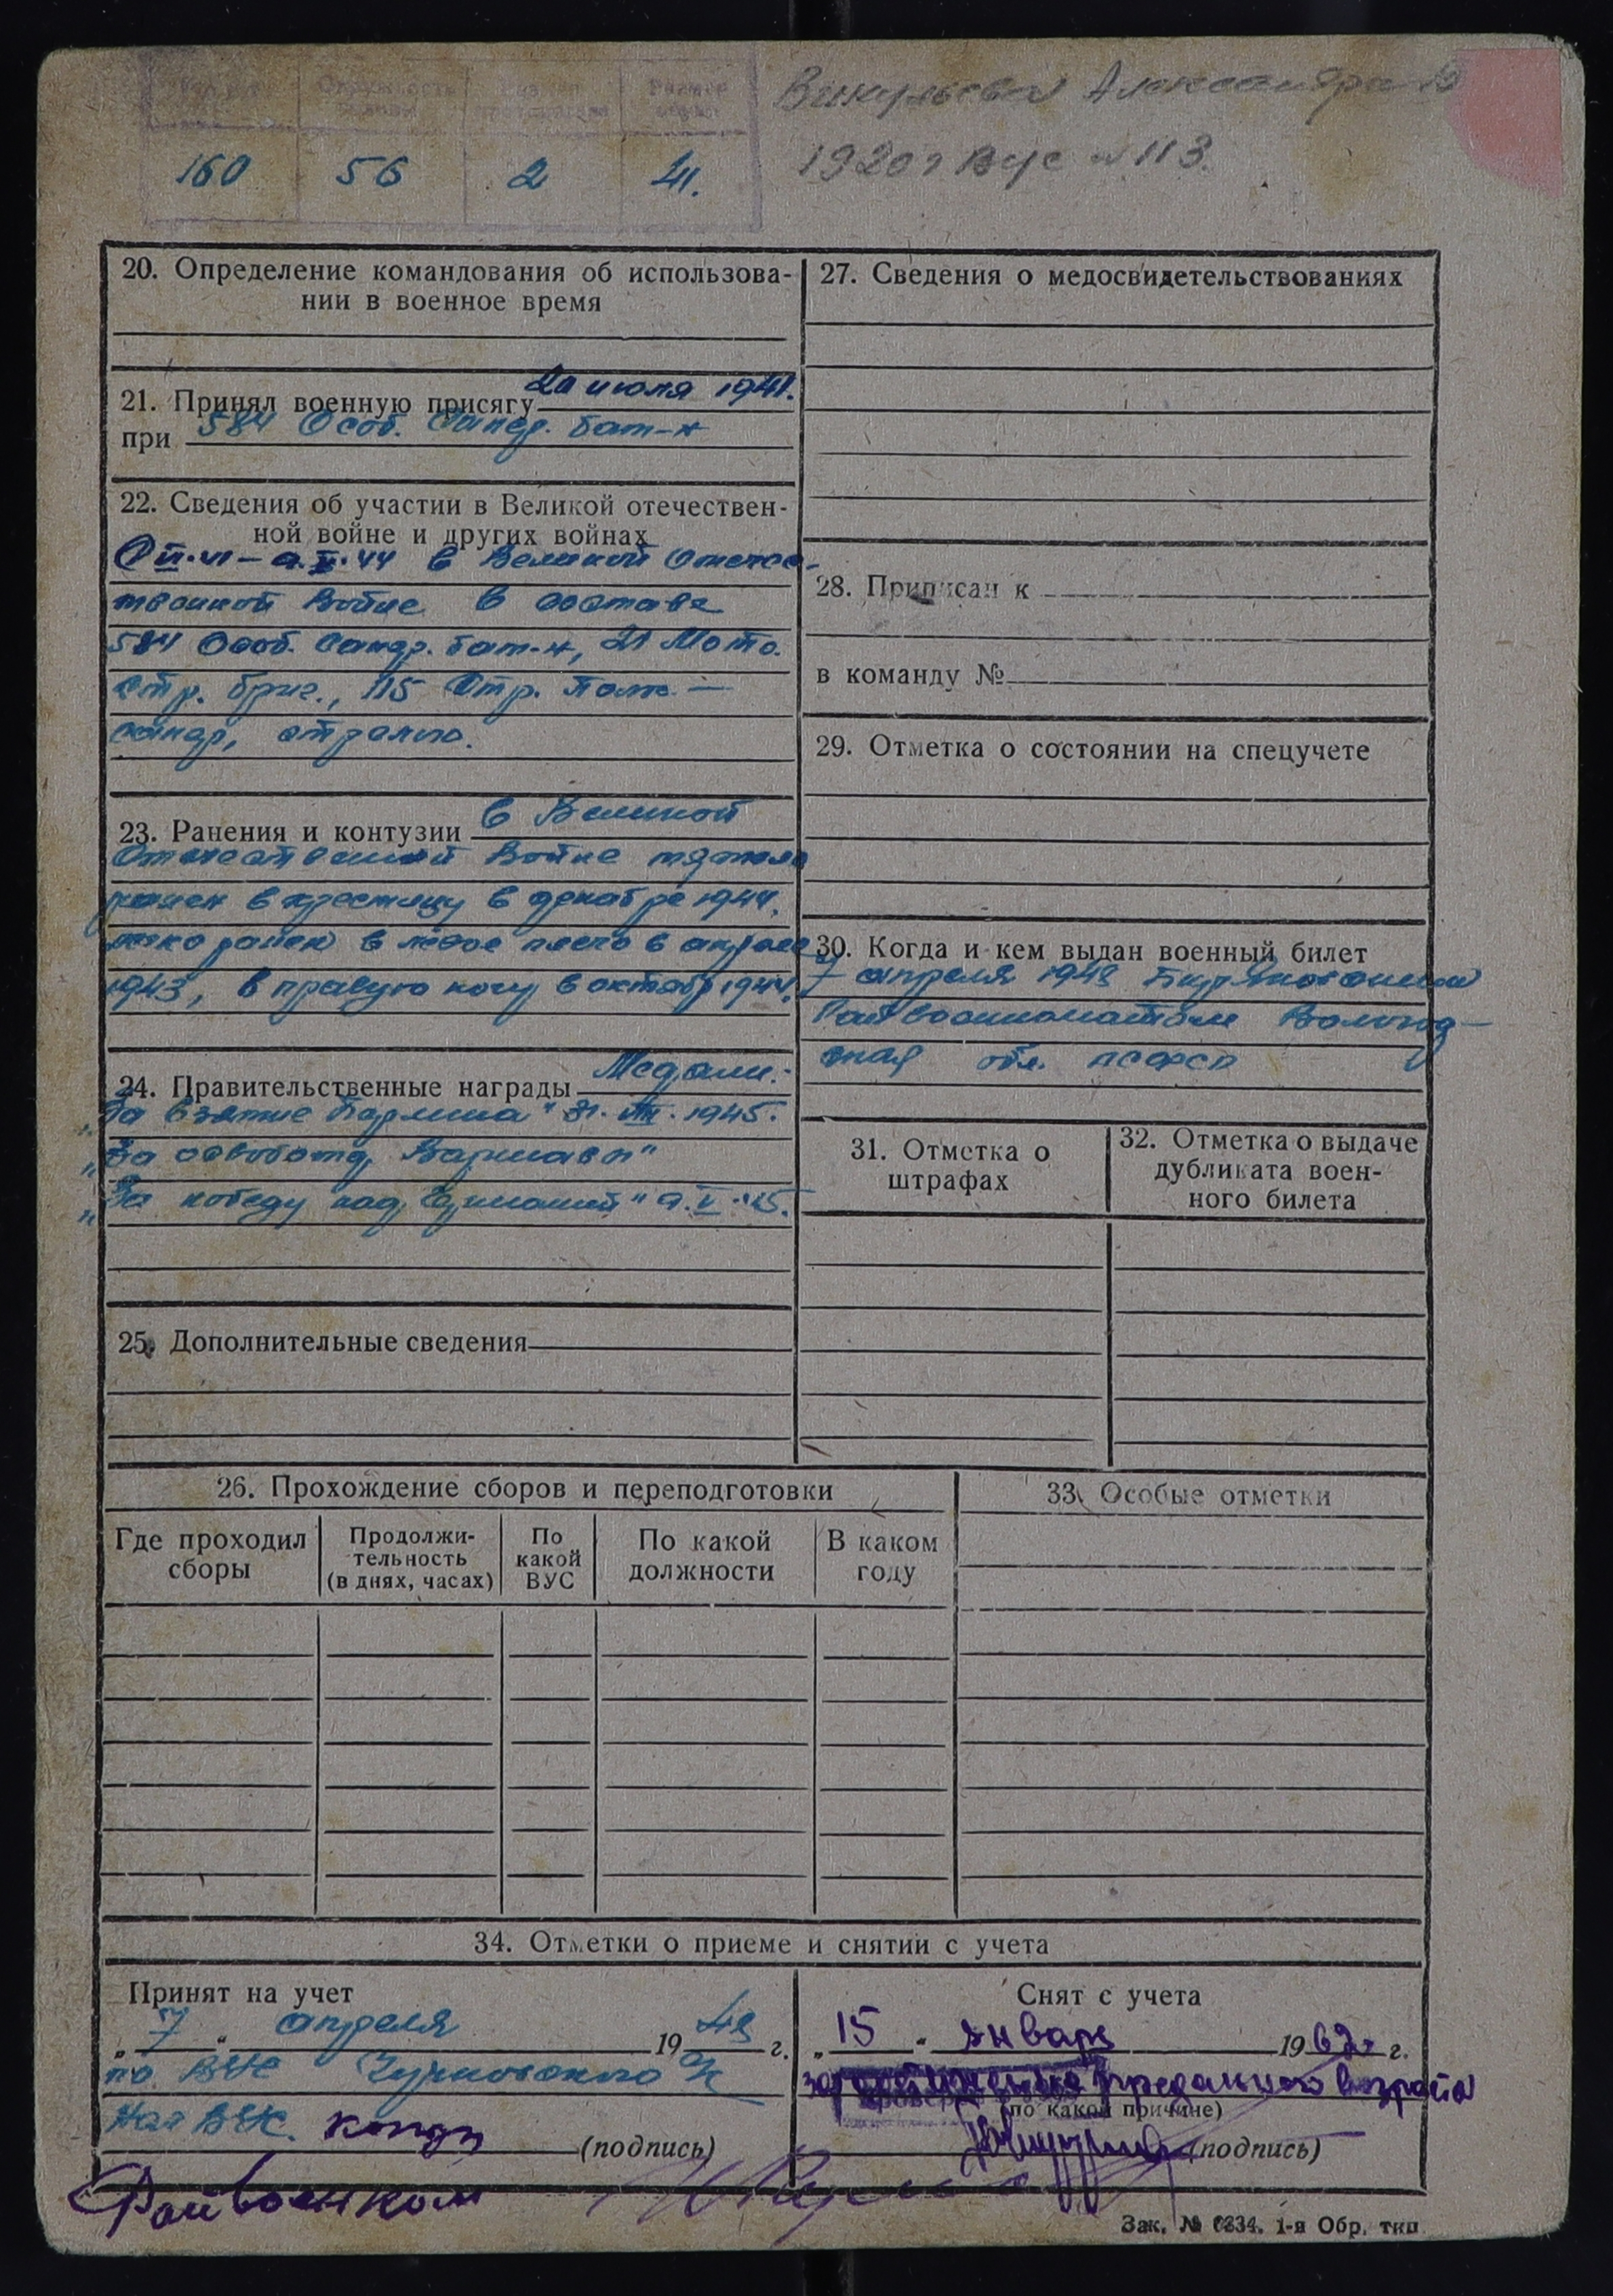 Викульева Александра
1920 г ВУС № 113.
160 56 2 41.
20. Определение командования об использова-
нии в военное время
21. Принял военную присягу 20 июля 1941.
при 584 Особ. Сапер. бат-н
22. Сведения об участии в Великой отечествен-
ной войне и других войнах
в Великой Отечес-
твенной Войне в составе
584 Особ. Сапер. бат-н, 21 Мото.
стр. бриг., 115 Стр. Полк —
сапер, стрелко.
23. Ранения и контузии в Великой
Отечественной Войне тяжело
ранен в крестицу в декабре 1941,
легко ранен в левое плечо в апреле
1943, в правую ногу в октябр 1944.
24. Правительственные награды Медали:
„За взятие Берлина"
„За освобожд. Варшавы"
„За победу над Германией" 9.V.45.
25. Дополнительные сведения
26. Прохождение сборов и переподготовки
Где проходил
сборы
Продолжи-
тельность
(в днях, часах)
По
какой
ВУС
По какой
должности
В каком
году
27. Сведения о медосвидетельствованиях
28. Приписан к
в команду №
29. Отметка о состоянии на спецучете
30. Когда и кем выдан военный билет
7 апреля 1949
Райвоенкоматом Вологод-
ская обл. РСФСР
31. Отметка о
штрафах
32. Отметка о выдаче
дубликата воен-
ного билета
33. Особые отметки
34. Отметки о приеме и снятии с учета
Принят на учет
„7" апреля 1949 г.
по ВУС
Нач ВУС.
(подпись)
Райвоенком
Снят с учета
„15" января 1962 г.
предельного возраста
(по какой причине)
(подпись)
Зак. № 6334. 1-я Обр. тип